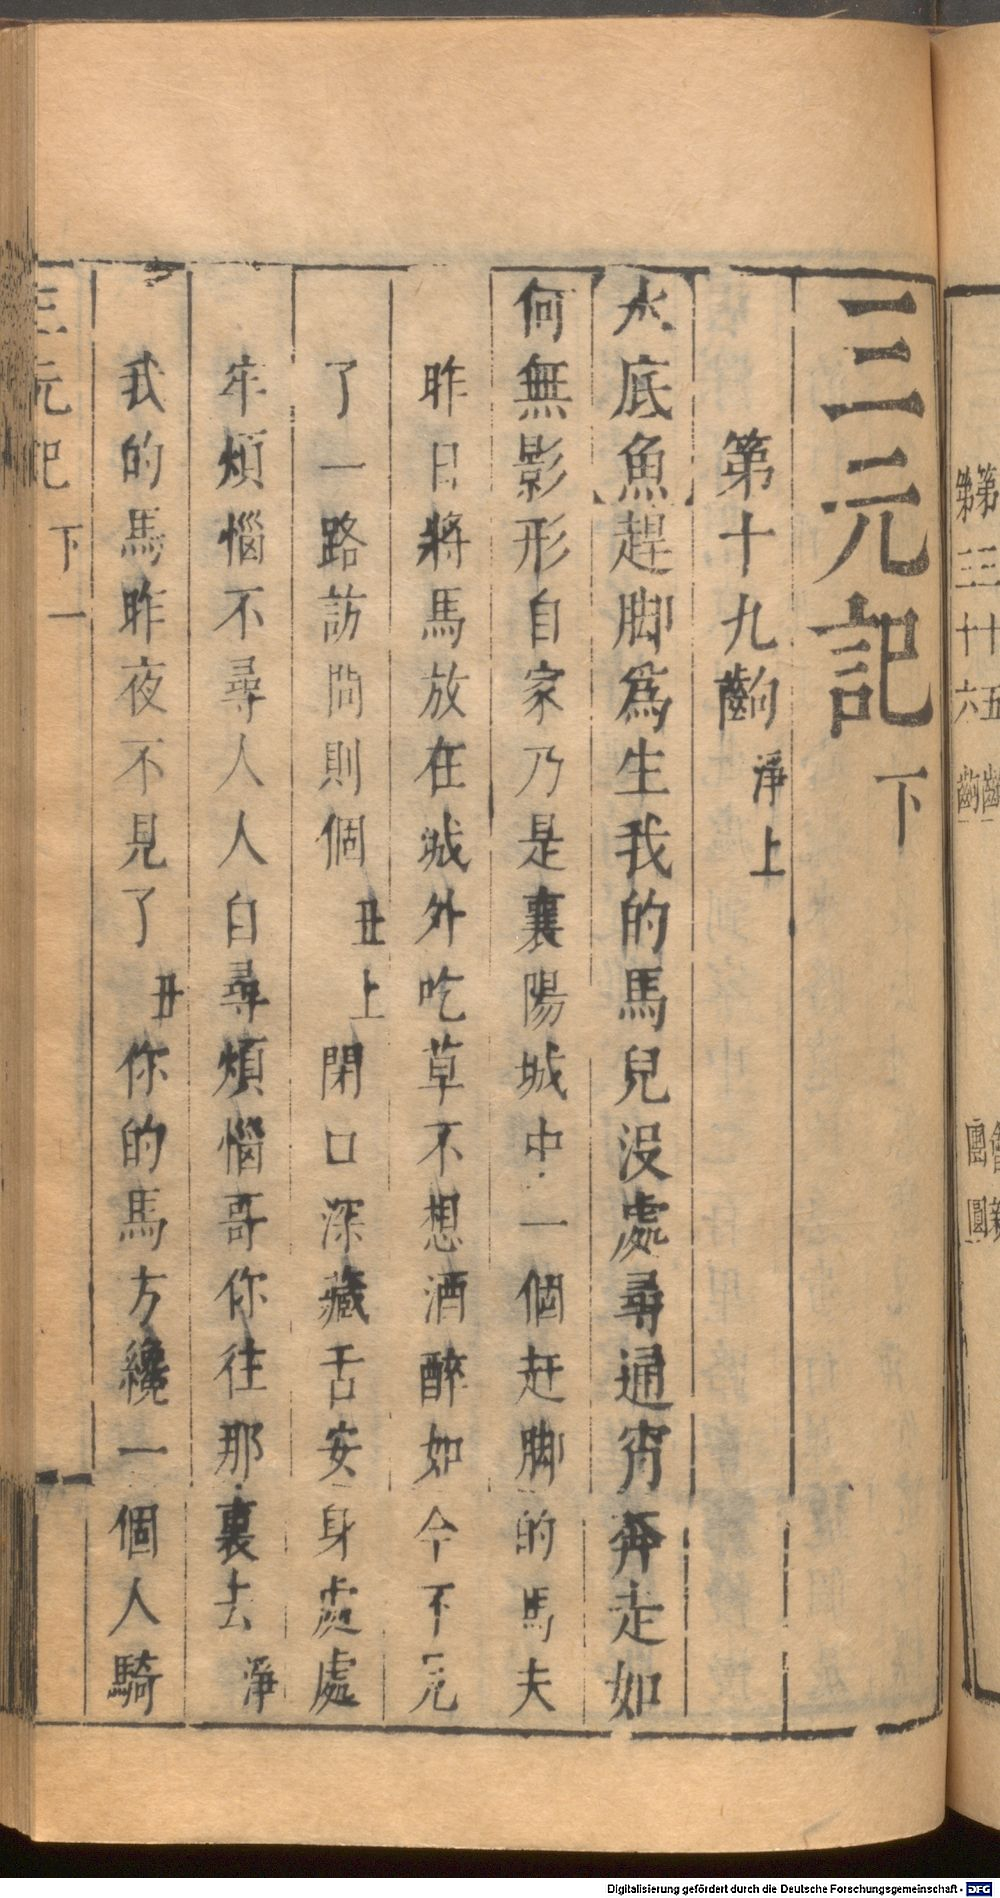 第三十五齣
會親
第三十六齣
團圓
三元記
下
第十九齣 淨上
水底魚 趕脚爲生我的馬兒沒處尋通宵奔走如
何無影形自家乃是襄陽城中一個赶脚的馬夫
昨日將馬放在城外吃草不想酒醉如今不見
了一路訪問則個 丑上 閉口深藏舌安身處處
牢煩惱不尋人人自尋煩惱哥你往那裏去 淨
我的馬昨夜不見了 丑 你的馬方纔一個人騎
三元記 下 一
Digitalisierung gefördert durch die Deutsche Forschungsgemeinschaft - DFG